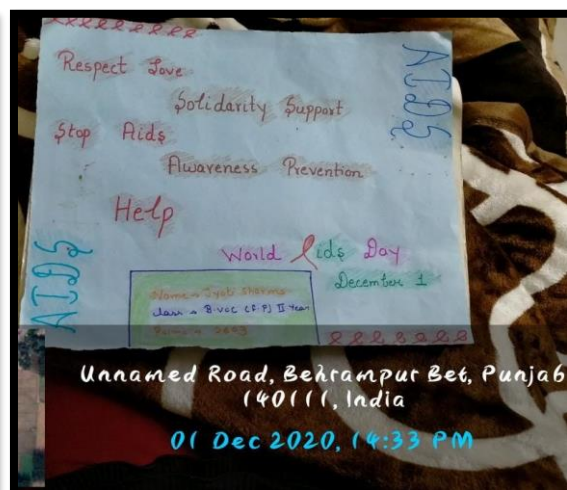 Respect Love
Solidarity Support
Stop Aids
Awareness Prevention
Help
World Aids Day
December 1
AIDS
AIDS
Name → Jyoti Sharma
Class → B.VOC (F.P) II Year
Unnamed Road, Behrampur Bet, Punjab
140111, India
01 Dec 2020, 14:33 PM